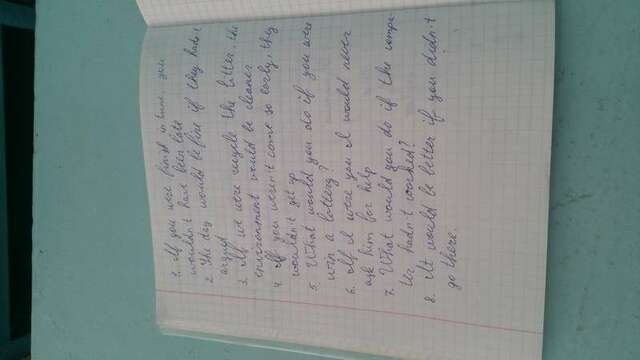 1. If you were finish in time, you
wouldn't have been late
2. The day would be fine if they hadn't
argued
3. If we were recycle the litter, the
environment would be cleaner
4. If you weren't come so early, they
wouldn't get up
5. What would you do if you were
win a lottery?
6. If I were you I would never
ask him for help
7. What would you do if the compu-
ter hadn't worked?
8. It would be better if you didn't
go there.